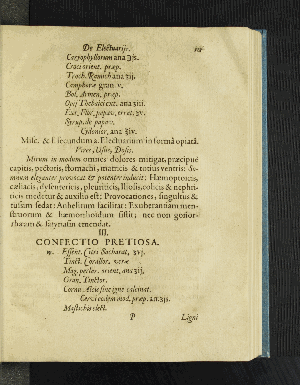 De Electuariis.
Caryophyllorum ana ʒjs.
Croci orient. præp.
Troch. Ramich ana ʒij.
Camphoræ gran. v.
Bol. Armen. præp.
Opij Thebaici ext. ana ʒiij.
Syrup. de papav.
Cydonior. ana ℥iv.
Misc. & F. secundum a. Electuarium in formâ opiatâ.
Vires, Usus, Dosis.
Mirum in modum omnes dolores mitigat, præcipuè
capitis, pectoris, stomachi, matricis & totius ventris: Somnum
eleganter provocat & potenter inducit: Hæmoptoicis,
cœliacis, dysentericis, pleuriticis, Iliosis, cobus & nephriticis
medetur & auxilio est: Provocationes, singultus &
tussim sedat: Asthesim facilitat: Exhorbitantiam menstruorum
& hæmorrhoidum sistit; nec non gonorrhœam
& satyriasin emendat.
III.
CONFECTIO PRETIOSA.
Essent. Citri Sacharat. ʒvj.
Tinct. Corallor. veræ
Mag. perlar. orient. ana ʒij.
Gran. Tinctor.
Cornu Alcis sine igne calcinat.
Cervi eodem mod. præp. an. ʒjs.
Mastichis elect.
P
Ligni